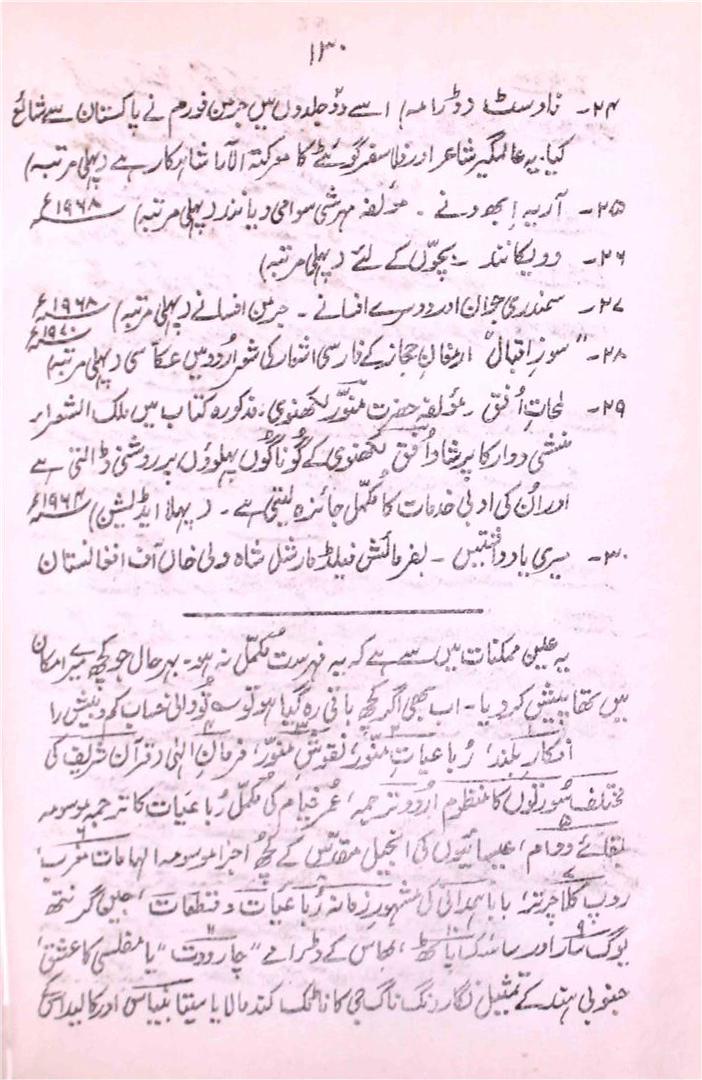 ۱۳۰
۲۴۔ فاوسٹ (ڈرامہ) اسے دو جلدوں میں جرمن فورم نے پاکستان سے شائع
کیا۔ یہ عالمگیر شاعر اور فلاسفر گوئٹے کا معرکتہ الآرا شاہکار ہے (پہلی مرتبہ)
۲۵۔ آریہ ابھونے ۔ مؤلفہ مہرشی سوامی دیانند (پہلی مرتبہ) ۱۹۶۸ء
۲۶۔ وویکانند ۔ بچوں کے لئے (پہلی مرتبہ)
۲۷۔ سمندری جوان اور دوسرے افسانے ۔ جرمن افسانے (پہلی مرتبہ) ۱۹۶۸ء
۲۸۔ "سوزِ اقبال" ارمغانِ حجاز کے فارسی اشعار کی شعرِ اُردو میں عکاسی (پہلی مرتبہ) ۱۹۷۰ء
۲۹۔ لمحاتِ اُفق ۔ مؤلفہ حضرت منوّر لکھنوی، مذکورہ کتاب میں ملک الشعراء
منشی دوارکا پرشاد اُفق لکھنوی کے گوناگوں پہلوؤں پر روشنی ڈالتی ہے
اور اُن کی ادبی خدمات کا مکمّل جائزہ لیتی ہے ۔ (پہلا ایڈیشن) ۱۹۶۴ء
۳۰۔ میری یادداشتیں ۔ بفرمائش فیلڈ مارشل شاہ ولی خاں آف افغانستان
یہ عین ممکنات میں سے ہے کہ یہ فہرست مکمّل نہ ہو۔ بہرحال جو کچھ میرے امکان
میں تھا پیش کر دیا ۔ اب بھی اگر کچھ باقی رہ گیا ہو تو سہ تو دانی حساب کم و بیش را
افکارِ بلند، رُباعیاتِ منوّر، نقوشِ منوّر، فرمانِ الٰہی (قرآن شریف کی
مختلف سُورتوں کا منظوم اُردو ترجمہ، عمر خیام کی مکمّل رُباعیات کا ترجمہ موسومہ
بقائے دوام، عیسائیوں کی انجیلِ مقدّس کے کچھ اجزا موسومہ الہاماتِ مغرب،
روپ کلا چرتر، بابا ہمدانی کی مشہورِ زمانہ رُباعیات و قطعات، جین گرنتھ
یوگ سار اور سامئک پاٹھ، بھاس کے ڈرامے "چارودت" یا مفلسی کا عشق،
جنوبی ہند کے تمثیل نگار دنگ ناگ جی کا ناٹک کند مالا یا سیتا بنباس اور کالیداس کے